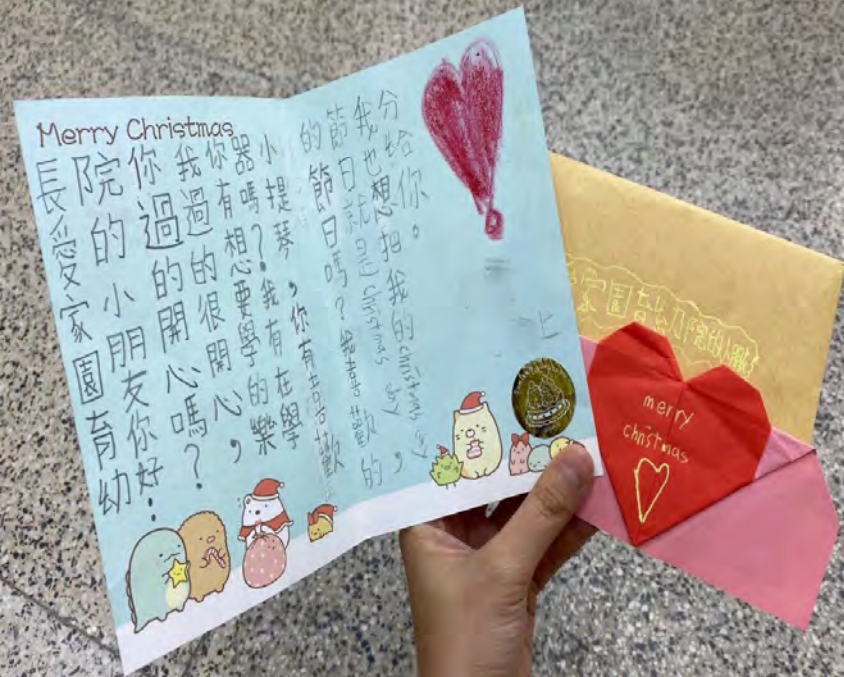 Merry Christmas
長愛家園育幼
院的小朋友你好!
你過的開心嗎?
我過的很開心,
你有想要學的樂
器嗎?我有在學
小提琴,你有喜歡
的節日嗎?我喜歡的
節日就是christmas day,
我也想把我的christmas day
分給你。
上
家園育幼院的
merry
christmas